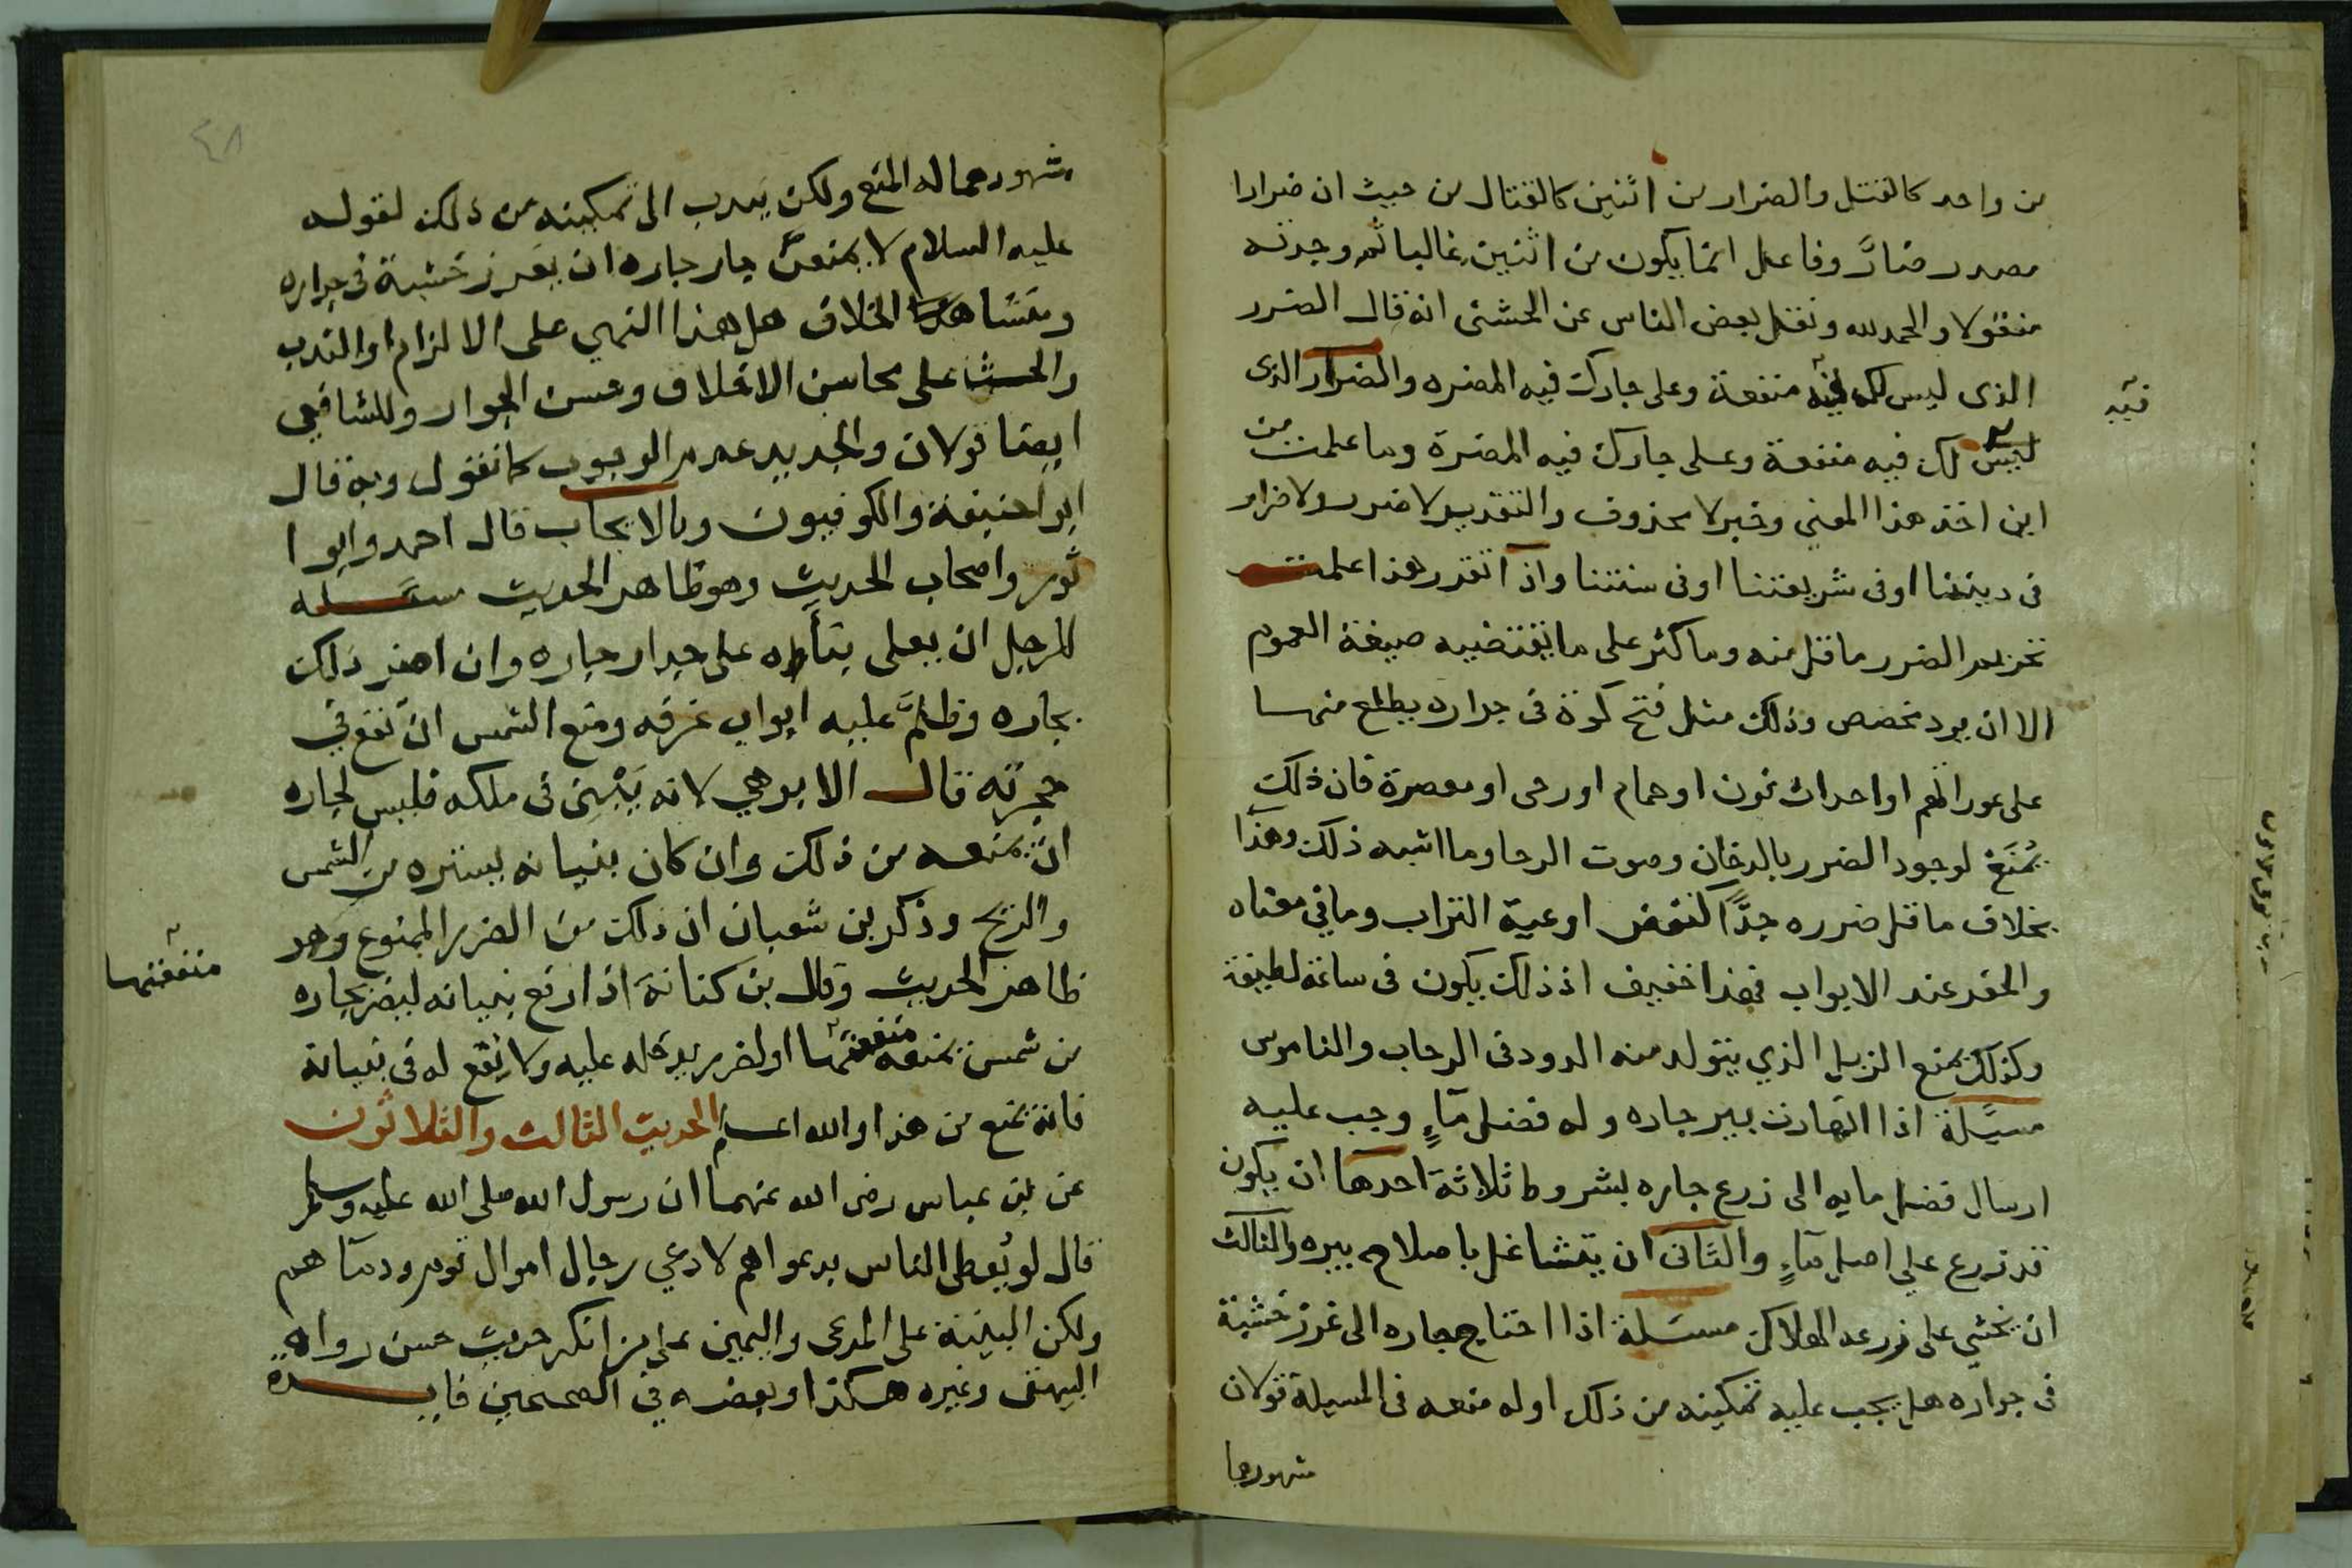 من واحد كالقتل والضرار من اثنين كالقتال من حيث ان ضرارا
مصدر ضارَّ وفاعل انما يكون من اثنين غالبا ثم وجدته
منقولا والحمد لله ونقل بعض الناس عن الخشنى انه قال الضرر
الذى ليس لك فيه منفعة وعلى جارك فيه المضره والضرار الذى
فيه
ليس لك فيه منفعة وعلى جارك فيه المضرة وما علمت من
اين اخذ هذا المعنى وخبر لا محذوف والتقدير لا ضرر ولا ضرار
فى ديننا او فى شريعتنا او فى سنتنا واذا تقرر هذا علمت
تحريم الضرر ما قل منه وما كثر على ما تقتضيه صيغة العموم
الا ان يرد مخصص وذلك مثل فتح كوة فى جداره يطلع منها
على عوراتهم او احداث فرن او حمام او رحى او معصرة فان ذلك
يُمنَع لوجود الضرر بالدخان وصوت الرحا وما اشبه ذلك وهذا
بخلاف ما قل ضرره جدًّا كنفض اوعية التراب وما في معناه
والحفر عند الابواب فهذا خفيف اذ ذلك يكون فى ساعة لطيفة
وكذلك يمنع الزبل الذي يتولد منه الدود فى الرحاب والناموس
مسئلة اذا انهارت بير جاره وله فضل مآءٍ وجب عليه
ارسال فضل مايه الى زرع جاره بشروط ثلاثة احدها ان يكون
قد زرع علي اصل مآءٍ والثانى ان يتشاغل باصلاح بيره والثالث
ان يخشي على زرعه الهلاك مسئلة اذا احتاج جاره الى غرز خشبة
فى جداره هل يجب عليه تمكينه من ذلك او له منعه فى المسيلة قولان
مشهورهما
٤٨
مشهورهما له المنع ولكن يندب الى تمكينه من ذلك لقوله
عليه السلام لا يمنعنَّ جار جاره ان يغرز خشبة فى جداره
الخلاف هل هذا النهي على الالزام او الندب
والحث على محاسن الاخلاق وحسن الجوار وللشافعي
ايضا قولان والجديد عدم الوجوب كما نقول وبه قال
ابو حنيفة والكوفيون وبالايجاب قال احمد وابوا
ثور واصحاب الحديث وهو ظاهر الحديث مسئلة
للرجل ان يعلى بنآءه على جدار جاره وان اضر ذلك
بجاره وظلَّم عليه ابواب غرفه ومنع الشمس ان تقع في
حجرته قال الابهري لانه يَبْنِى فى ملكه فليس لجاره
ان يمنعه من ذلك وان كان بنيانه يستره من الشمس
والريح وذكر بن شعبان ان ذلك من الضرر الممنوع وهو
ظاهر الحديث وقال بن كنانة اذا رفع بنيانه ليضر بجاره
منفعتها
من شمس يمنعه منفعتها او لضرر يدخله عليه ولا نفع له فى بنيانه
فانه يمنع من هذا والله اعلم الحديث الثالث والثلاثون
عن بن عباس رضى الله عنهما ان رسول الله صلى الله عليه وسلم
قال لو يُعطى الناس بدعواهم لادعي رجال اموال قوم ودمآهم
ولكن البينة على المدعى واليمين على من انكر حديث حسن رواه
البيهقى وغيره هكذا وبعضه في الصحيحين فايدة